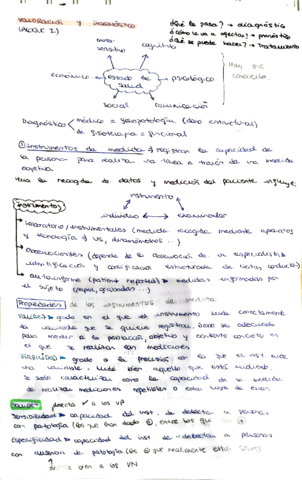 VALORACIÓN Y DIAGNÓSTICO
(BLOQUE I)
¿Qué le pasa? → diagnóstico
¿cómo se va a afectar? → pronóstico
¿Qué se puede hacer? → Tratamiento
Hay que conocerlo
moto-sensitivo
cognitivo
económico
estado de salud
psicológico
social
comunicación
Diagnóstico
médico = fisiopatología (daño estructural)
de fisioterapia = funcional
① Instrumentos de medida → registran la capacidad de
la persona para realizar una tarea a través de una medida
objetiva
Para la recogida de datos y medición del paciente influye:
instrumento
individuo ↔ examinador
Instrumentos
Laboratorio/instrumentales (medida recogida mediante aparatos
y tecnología → US, dinamómetros...)
Observacionales (depende de la observación de un especialista →
identificación y codificación estructurada de ciertas conductas)
Autoinforme (patient reported) → medidas informadas por
el sujeto (papel, grabadas...)
Propiedades de los instrumentos de medida
Validez → grado en el que el instrumento mide correctamente
la variable que se quiere registrar. Debe ser adecuado
para medir a la población, objetivo y contexto concreto en
el que se realizan las mediciones
Fiabilidad → grado o la precisión con la que el inst mide
una variable. Mide bien aquello que está midiendo.
Se suele caracterizar como la capacidad de la medida
de realizar mediciones repetibles o estar libre de error.
Validez
directa a los VP
Sensibilidad → capacidad del inst. de detectar a personas
con patología
Especificidad → capacidad del inst de detectar a personas
con ausencia de patología
directa con a los VN